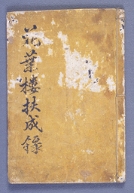 花葉樓扶成錄